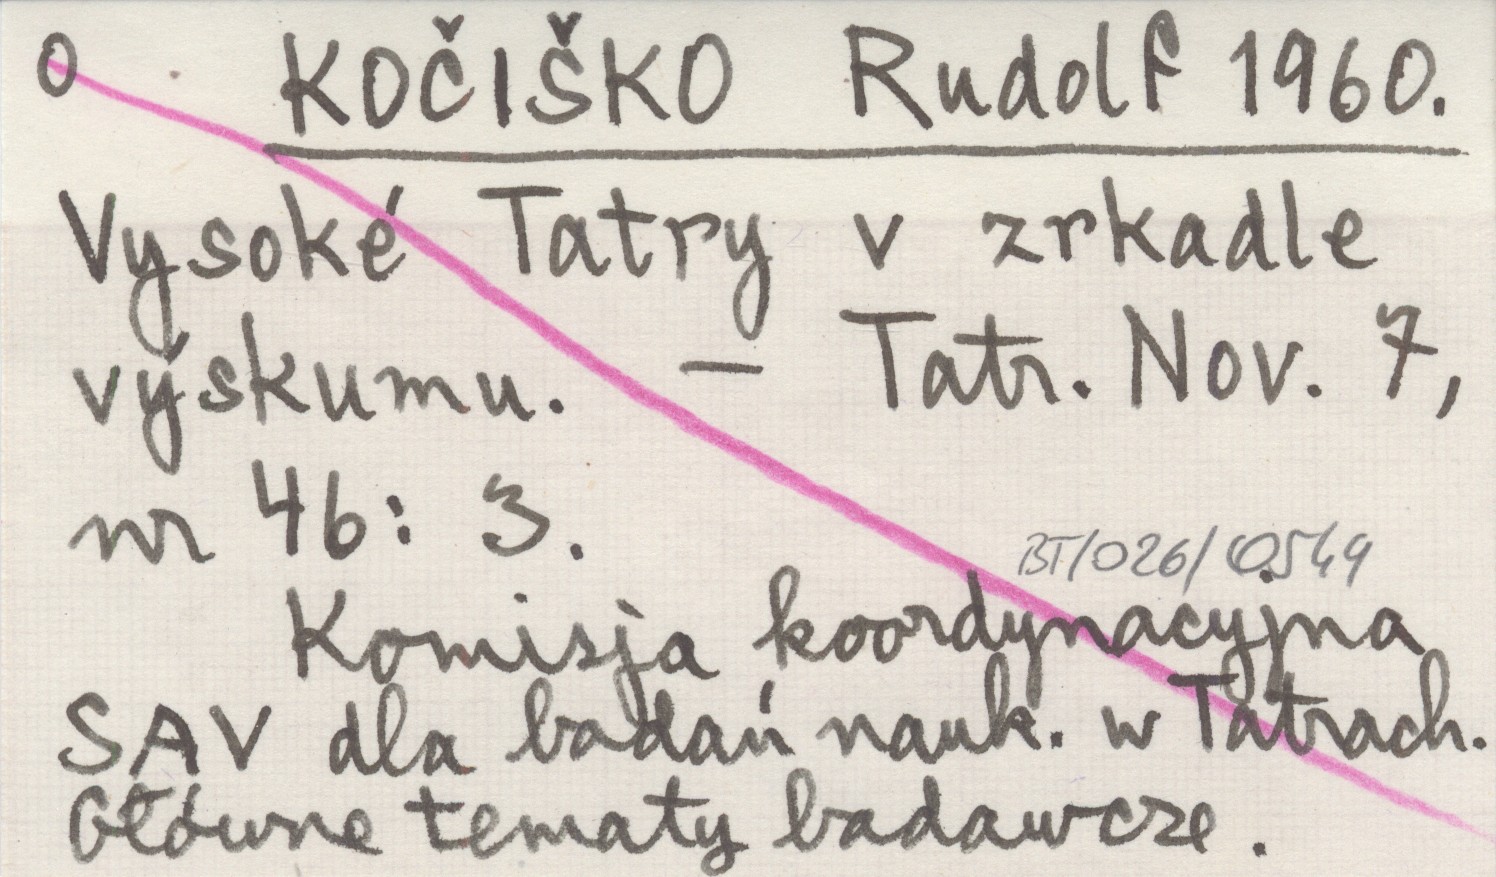 O KOČIŠKO Rudolf 1960.
Vysoké Tatry v zrkadle
výskumu. — Tatr. Nov. 7,
nr 46: 3.
BT/026/0549
Komisja koordynacyjna
SAV dla badań nauk. w Tatrach.
Główne tematy badawcze.